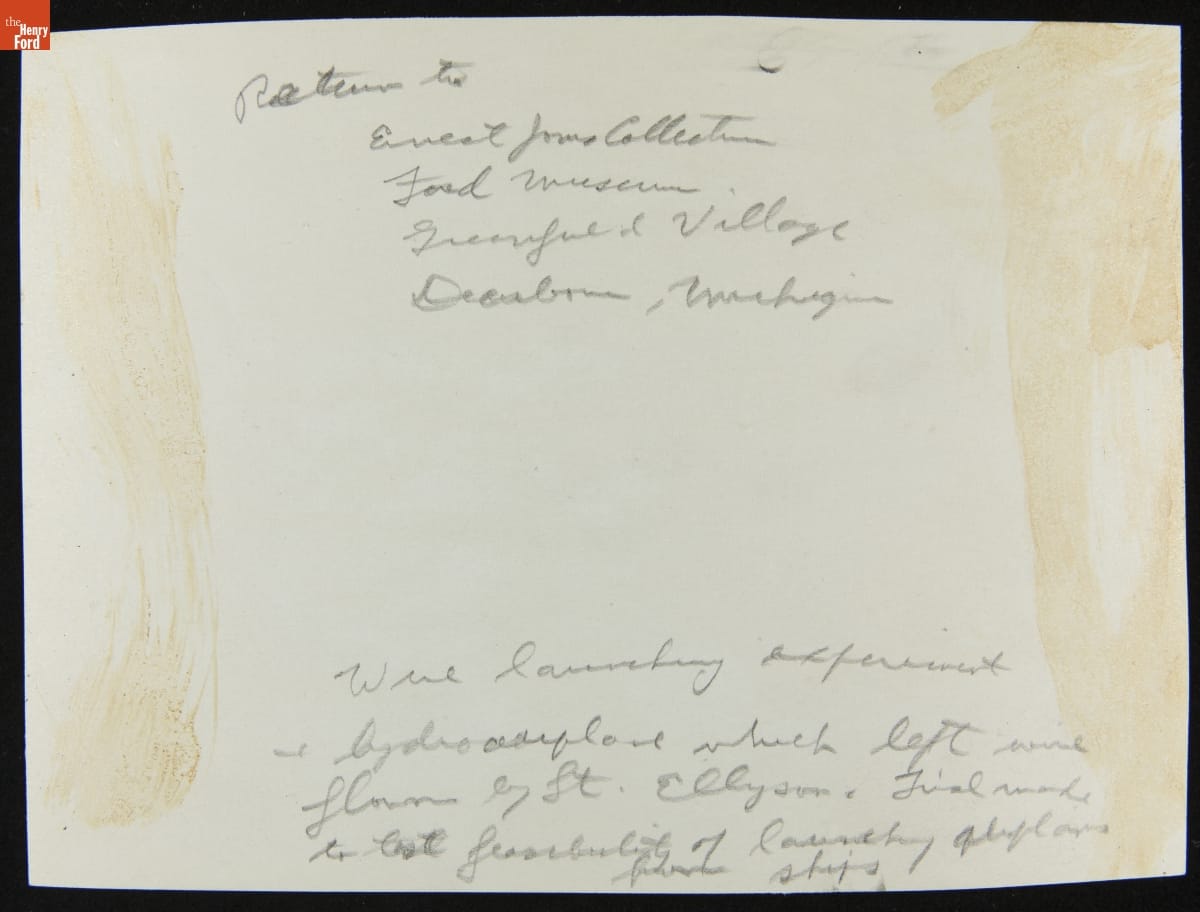 the
Henry
Ford
Return to
Ernest Jones Collection
Ford Museum.
Greenfield Village
Dearborn, Michigan
Wire launching experiment
hydroaeroplane which left wire
flown by Lt. Ellyson. Trial made
to test feasibility of launching airplanes
from ships